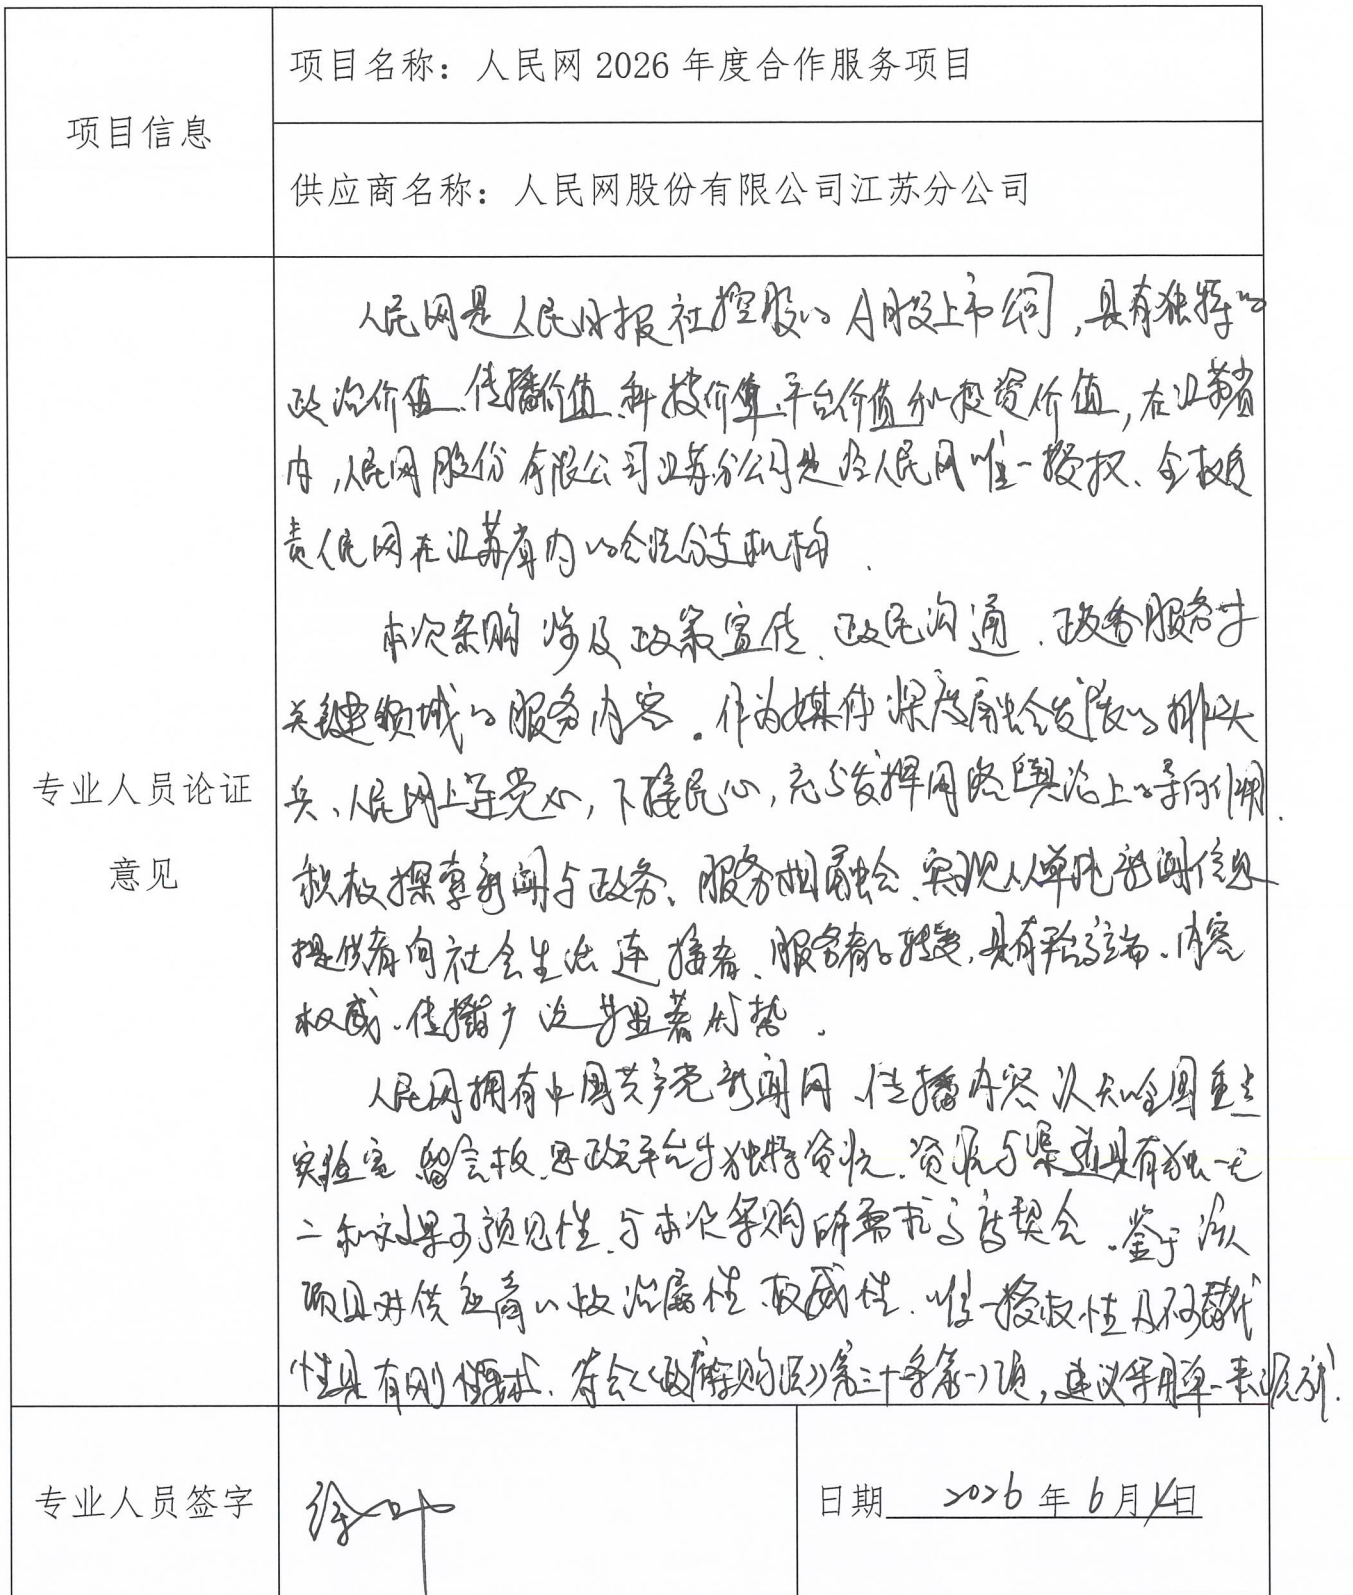 项目信息
项目名称：人民网 2026 年度合作服务项目
供应商名称：人民网股份有限公司江苏分公司
专业人员论证
意见
人民网是人民日报社控股的A股上市公司，具有独特的
政治价值、传播价值、科技价值、平台价值和投资价值，在江苏省
内，人民网股份有限公司江苏分公司是经人民网唯一授权、全权负
责人民网在江苏省内的合法分支机构．
本次采购涉及政策宣传、政民沟通、政务服务等
关键领域的服务内容。作为媒体深度融合发展的排头
兵、人民网上连党心，下接民心，充分发挥网络舆论上的导向作用．
积极探索新闻与政务、服务相融合、实现从单纯新闻信息
提供者向社会生活连接者、服务者的转变，具有平台高端、内容
权威、传播广泛等显著优势．
人民网拥有中国共产党新闻网、传播内容认知全国重点
实验室、留言板、思政云平台等独特资源、资源与渠道具有独一无
二和效果可预见性、与本次采购所需求高度契合。鉴于该
项目对供应商的政治属性、权威性、唯一授权性及不可替代
性具有刚性要求、符合《政府采购法》第三十一条第(一)项，建议采用单一来源方式．
专业人员签字
日期 2026 年 6 月 日